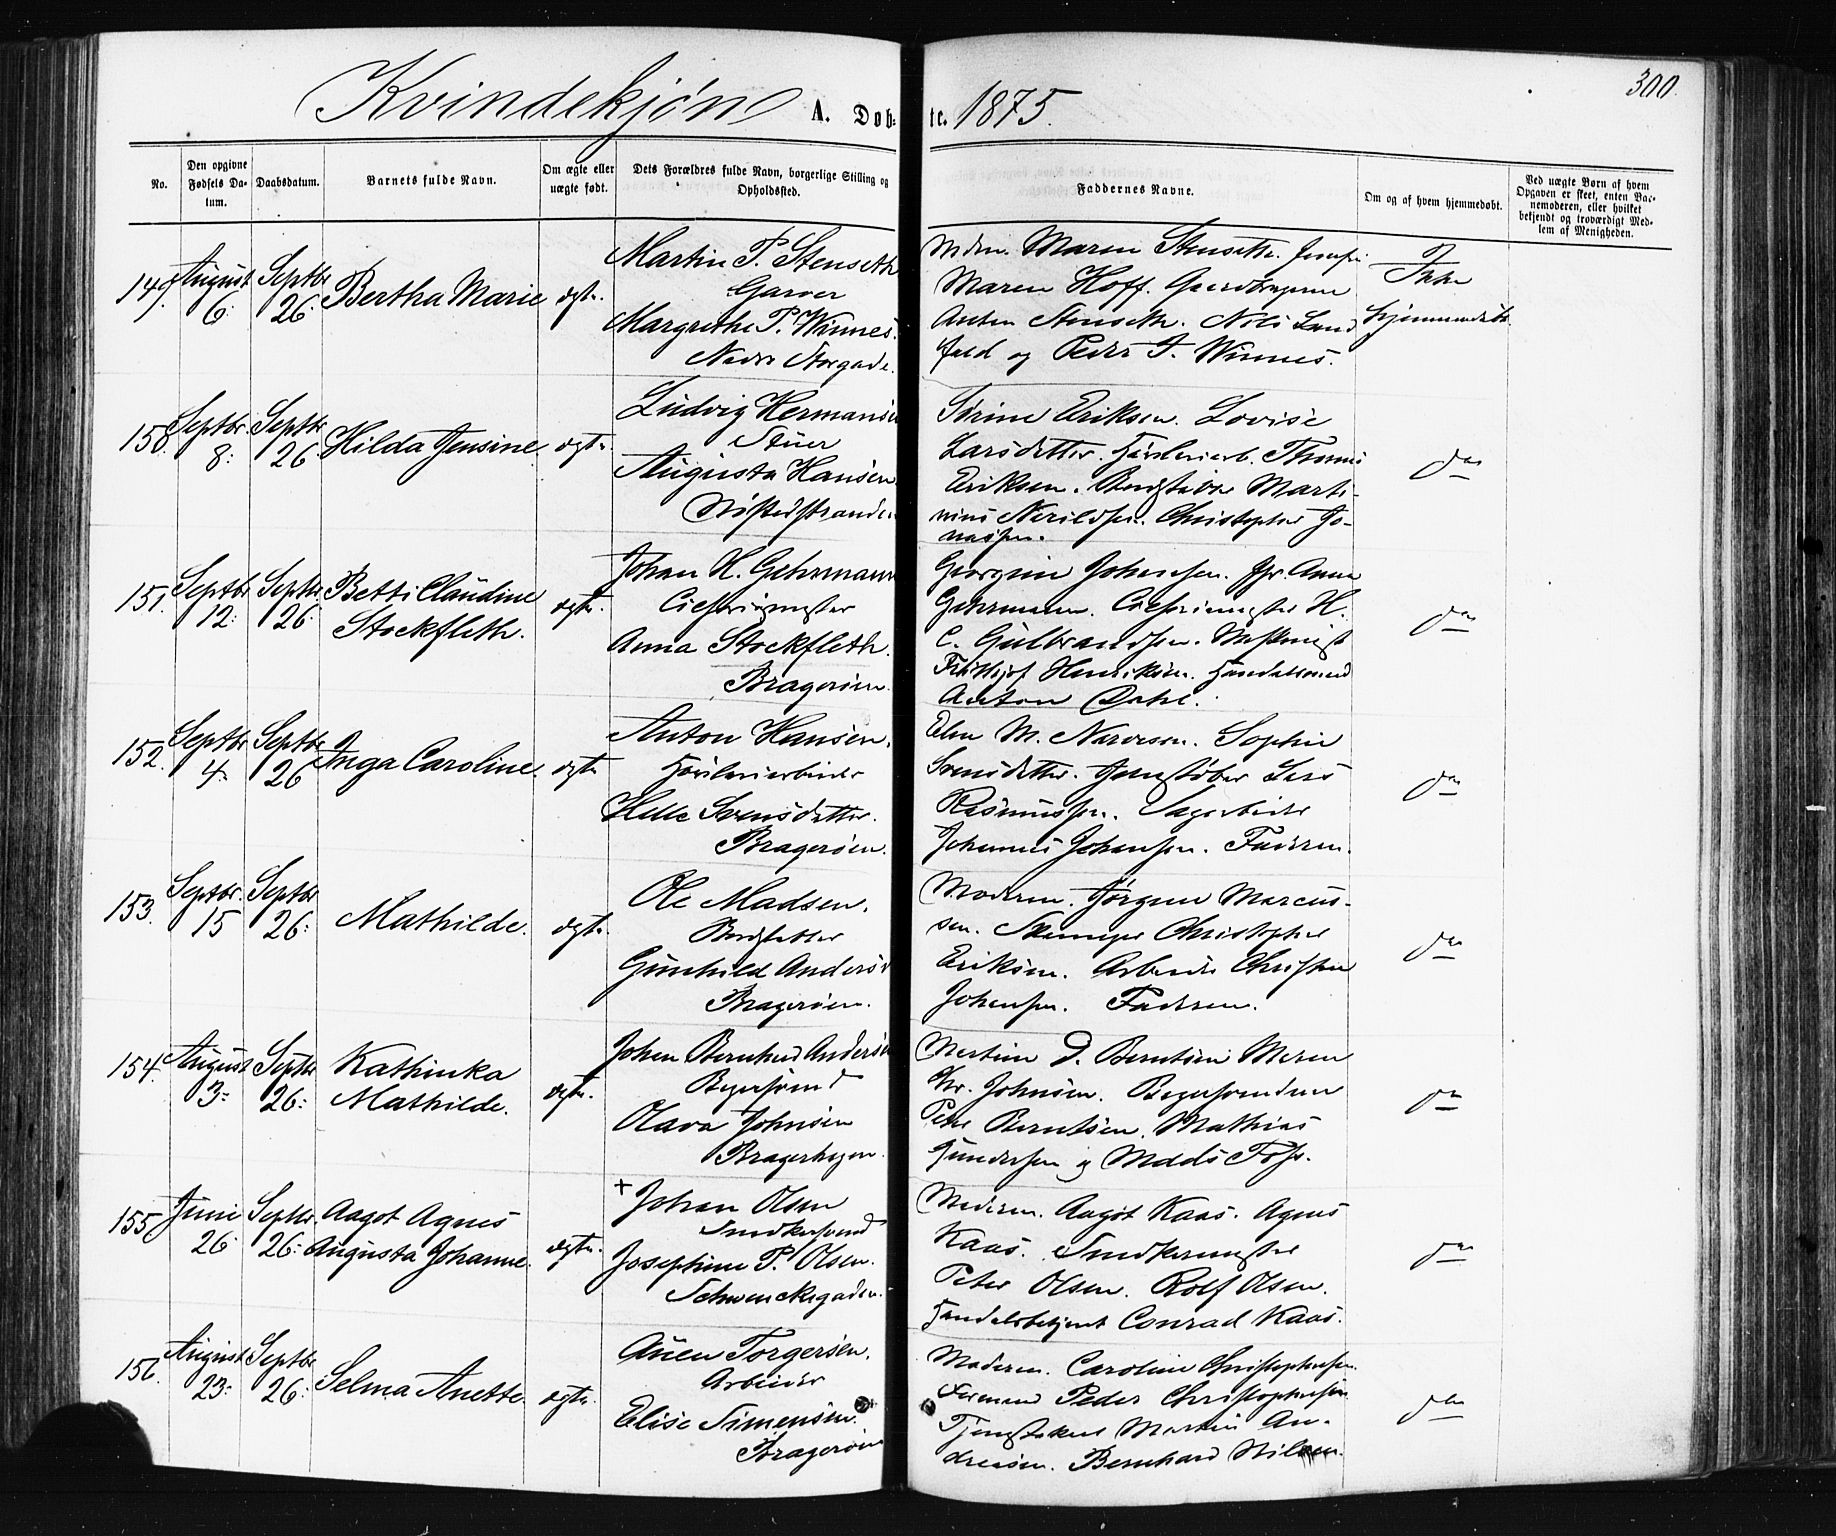 300
Kvindekjøn A. Døb- te. 1875.
No.
Den opgivne Fødsels Da- tum.
Daabsdatum.
Barnets fulde Navn.
Om ægte eller uægte født.
Dets Forældres fulde Navn, borgerlige Stilling og Opholdssted.
Faddernes Navne.
Om og af hvem hjemmedøbt.
Ved uægte Børn af hvem Opgaven er skeet, enten Bar- nemoderen, eller hvilket bekjendt og troværdigt Med- lem af Menigheden.
149. August 6. Septbr 26. Bertha Marie ægte.
Martin P. Stenseth
Garver
Margrethe P. Winnes.
Nedre Storgade.
Maren Stenseth.
Maren Hoff.
Anton Stenseth. Nils Land
fald og Peder J. Winnes.
Ikke
hjemmedøbt
150. Septbr. 8. Septbr 26 Hilda Jensine. ægte.
Ludvig Hermansen
Stuer
Augusta Hansen
Nøstedstranden
Sørine Eriksen. Lovise
Larsdetter. Thomas
Eriksen. Marti-
nius Christopher Jo-
nassen.
do
151. Septbr 12. Septbr. 26. Betti Claudine ægte.
Stockfleth.
Johan H. Gehrmann
Anna Stockfleth.
Bragerøen.
Georgine Johannsen. Anna
Gehrmann. H.
C. Gulbrandsen.
Frithjof Henriksen.
Anton Dahl.
do
152. Septbr 4. Septbr 26 Inga Caroline. ægte
Anton Hansen.
Helle Svensdatter.
Bragerøen.
M. Narvesen. Sophie
Svensdatter. Lars
Rasmussen. Sagarbeider
Johannes Johansen. Faderen.
do
153. Septbr. 15 Septbr 26. Mathilde. ægte.
Ole Madsen.
Gunhild Anders
Bragerøen.
Moderen. Jørgine Marcus-
sen. Christopher
Eriksen. Arbeider Christian
Johansen. Faderen.
do
154. August 3. Septbr 26. Kathinka ægte.
Mathilde.
Johan Bernhard Andersen
Bagersvend
Olava Johnsen
Bragerhagen.
Martine D. Berntsen Maren
Chr. Johnsen. Bagersvendene
Berntsen. Mathias
Gundersen og Mads Foss.
do
155 Juni 26 Septbr. 26. Aagot Agnes
Augusta Johanne. ægte.
+ Johan Olsen
Snedkersvend
Josephine P. Olsen.
Schwenckegaden.
Moderen. Aagot Kaas. Agnes
Kaas. Snedkermester
Peter Olsen. Rolf Olsen.
Handelsbetjent Conrad Kaas.
do
156. August 23. Septbr 26. Selma Anette. ægte.
Auen Torgersen.
Arbeider
Elise Simensen.
Bragerøen
Moderen. Caroline Christophersen.
Peder Christophersen
Martin An-
dreasen. Bernhard Nilsen.
do